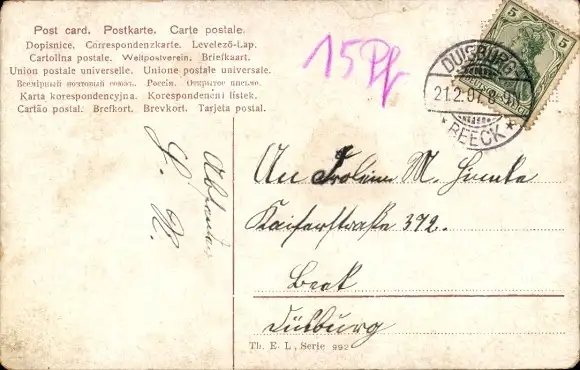 Post card. Postkarte. Carte postale.
Dopisnice. Correspondenzkarte. Levelező-Lap.
Cartolina postale. Weltpostverein. Briefkaart.
Union postale universelle. Unione postale universale.
Всемірный почтовый союзъ. Россія. Открытое письмо.
Karta korespondencyjna. Korespondenční lístek.
Cartão postal. Brefkort. Brevkort. Tarjeta postal.
15 Pf
5 5
DUISBURG
21.2.07. 8-9
* BEECK *
An Frolein M.
Kaiserstraße 392.
Beek
Düisburg
L. K.
Th. E. L., Serie 992